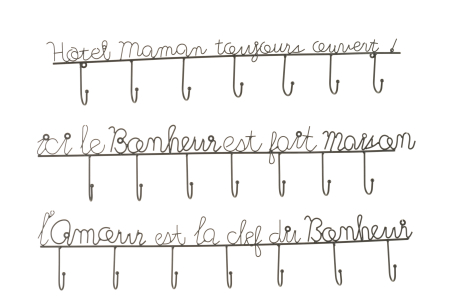 Hotel Maman toujours ouvert !
ici le Bonheur est fait maison
l'Amour est la clef du Bonheur